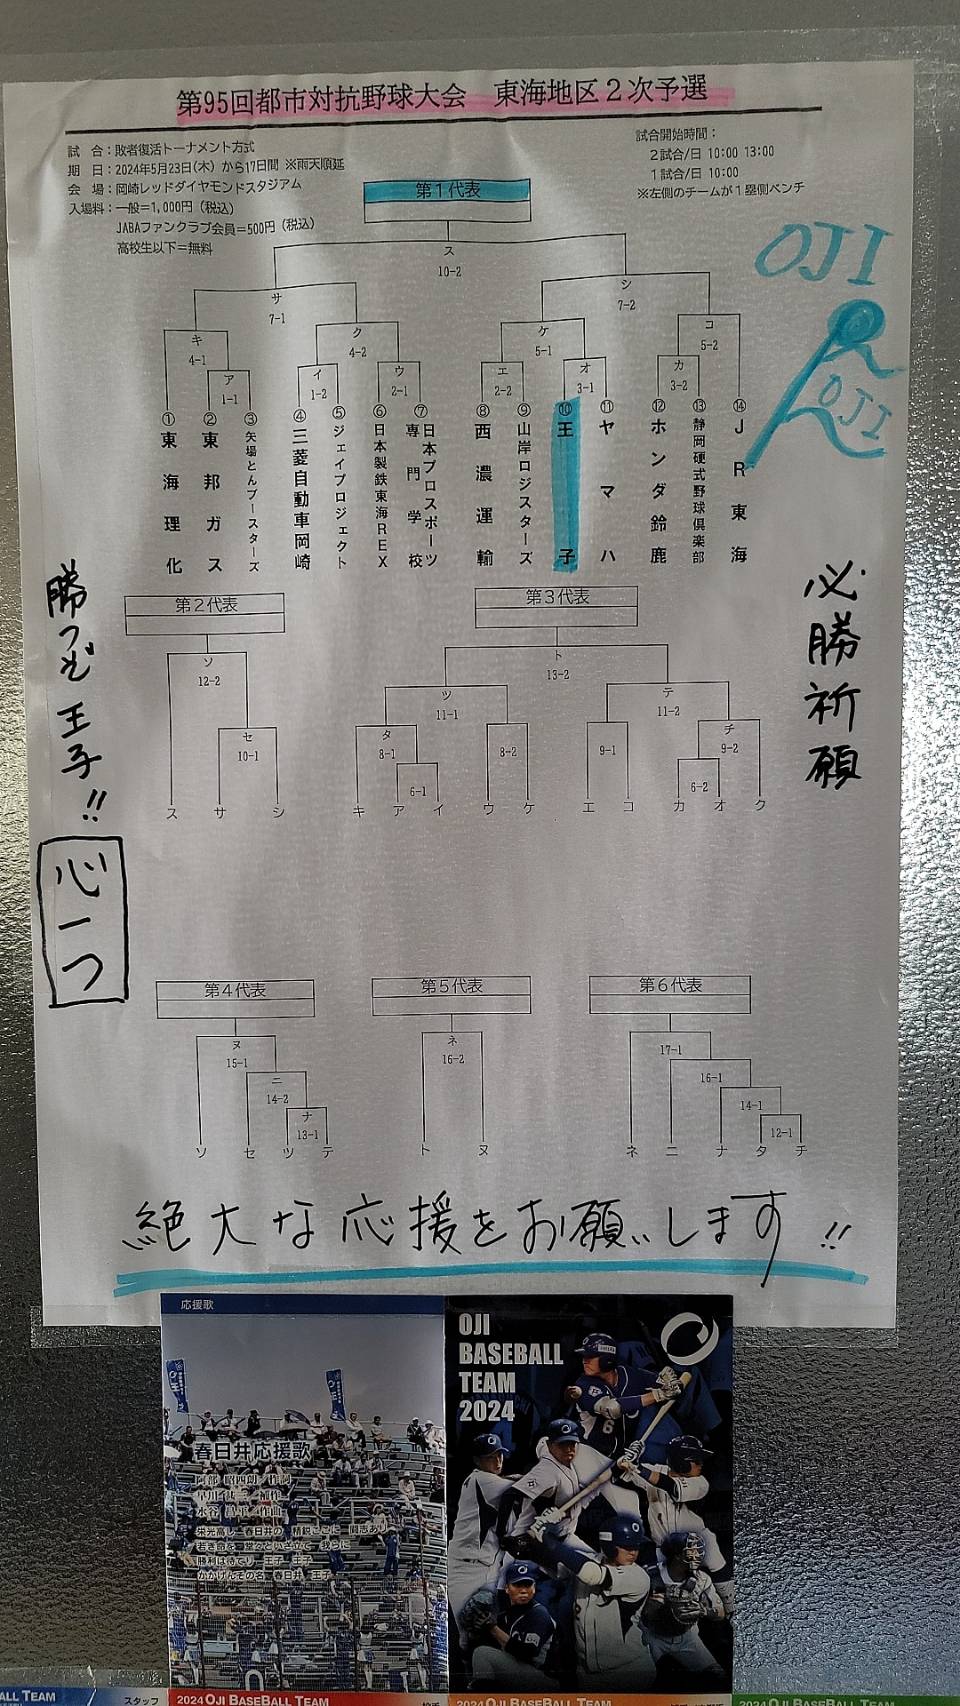 第95回都市対抗野球大会　東海地区２次予選
試　合：敗者復活トーナメント方式
期　日：2024年5月23日(木）から17日間 ※雨天順延
会　場：岡崎レッドダイヤモンドスタジアム
入場料：一般=1,000円（税込）
JABAファンクラブ会員=500円（税込）
高校生以下=無料
試合開始時間：
２試合/日 10:00 13:00
１試合/日 10:00
※左側のチームが１塁側ベンチ
OJI
OJI
第１代表
ス
10-2
サ
7-1
シ
7-2
キ
4-1
ク
4-2
ケ
5-1
コ
5-2
ア
1-1
イ
1-2
ウ
2-1
エ
2-2
オ
3-1
カ
3-2
①東海理化
②東邦ガス
③矢場とんブースターズ
④三菱自動車岡崎
⑤ジェイプロジェクト
⑥日本製鉄東海REX
⑦日本プロスポーツ専門学校
⑧西濃運輸
⑨山岸ロジスターズ
⑩王子
⑪ヤマハ
⑫ホンダ鈴鹿
⑬静岡硬式野球倶楽部
⑭JR東海
勝つぞ王子!!
心一つ
必勝祈願
第２代表
ソ
12-2
セ
10-1
ス サ シ
第３代表
ト
13-2
ツ
11-1
テ
11-2
タ
8-1
8-2
9-1
チ
9-2
6-1
6-2
キ ア イ ウ ケ エ コ カ オ ク
第４代表
ヌ
15-1
ニ
14-2
ナ
13-1
ソ セ ツ テ
第５代表
ネ
16-2
ト ヌ
第６代表
17-1
16-1
14-1
12-1
ネ ニ ナ タ チ
絶大な応援をお願いします!!
応援歌
春日井応援歌
OJI
BASEBALL
TEAM
2024
ALL TEAM
スタッフ
2024 OJI BASEBALL TEAM
2024 OJI BASEBALL TEAM
2024 OJI BASEBALL TEAM